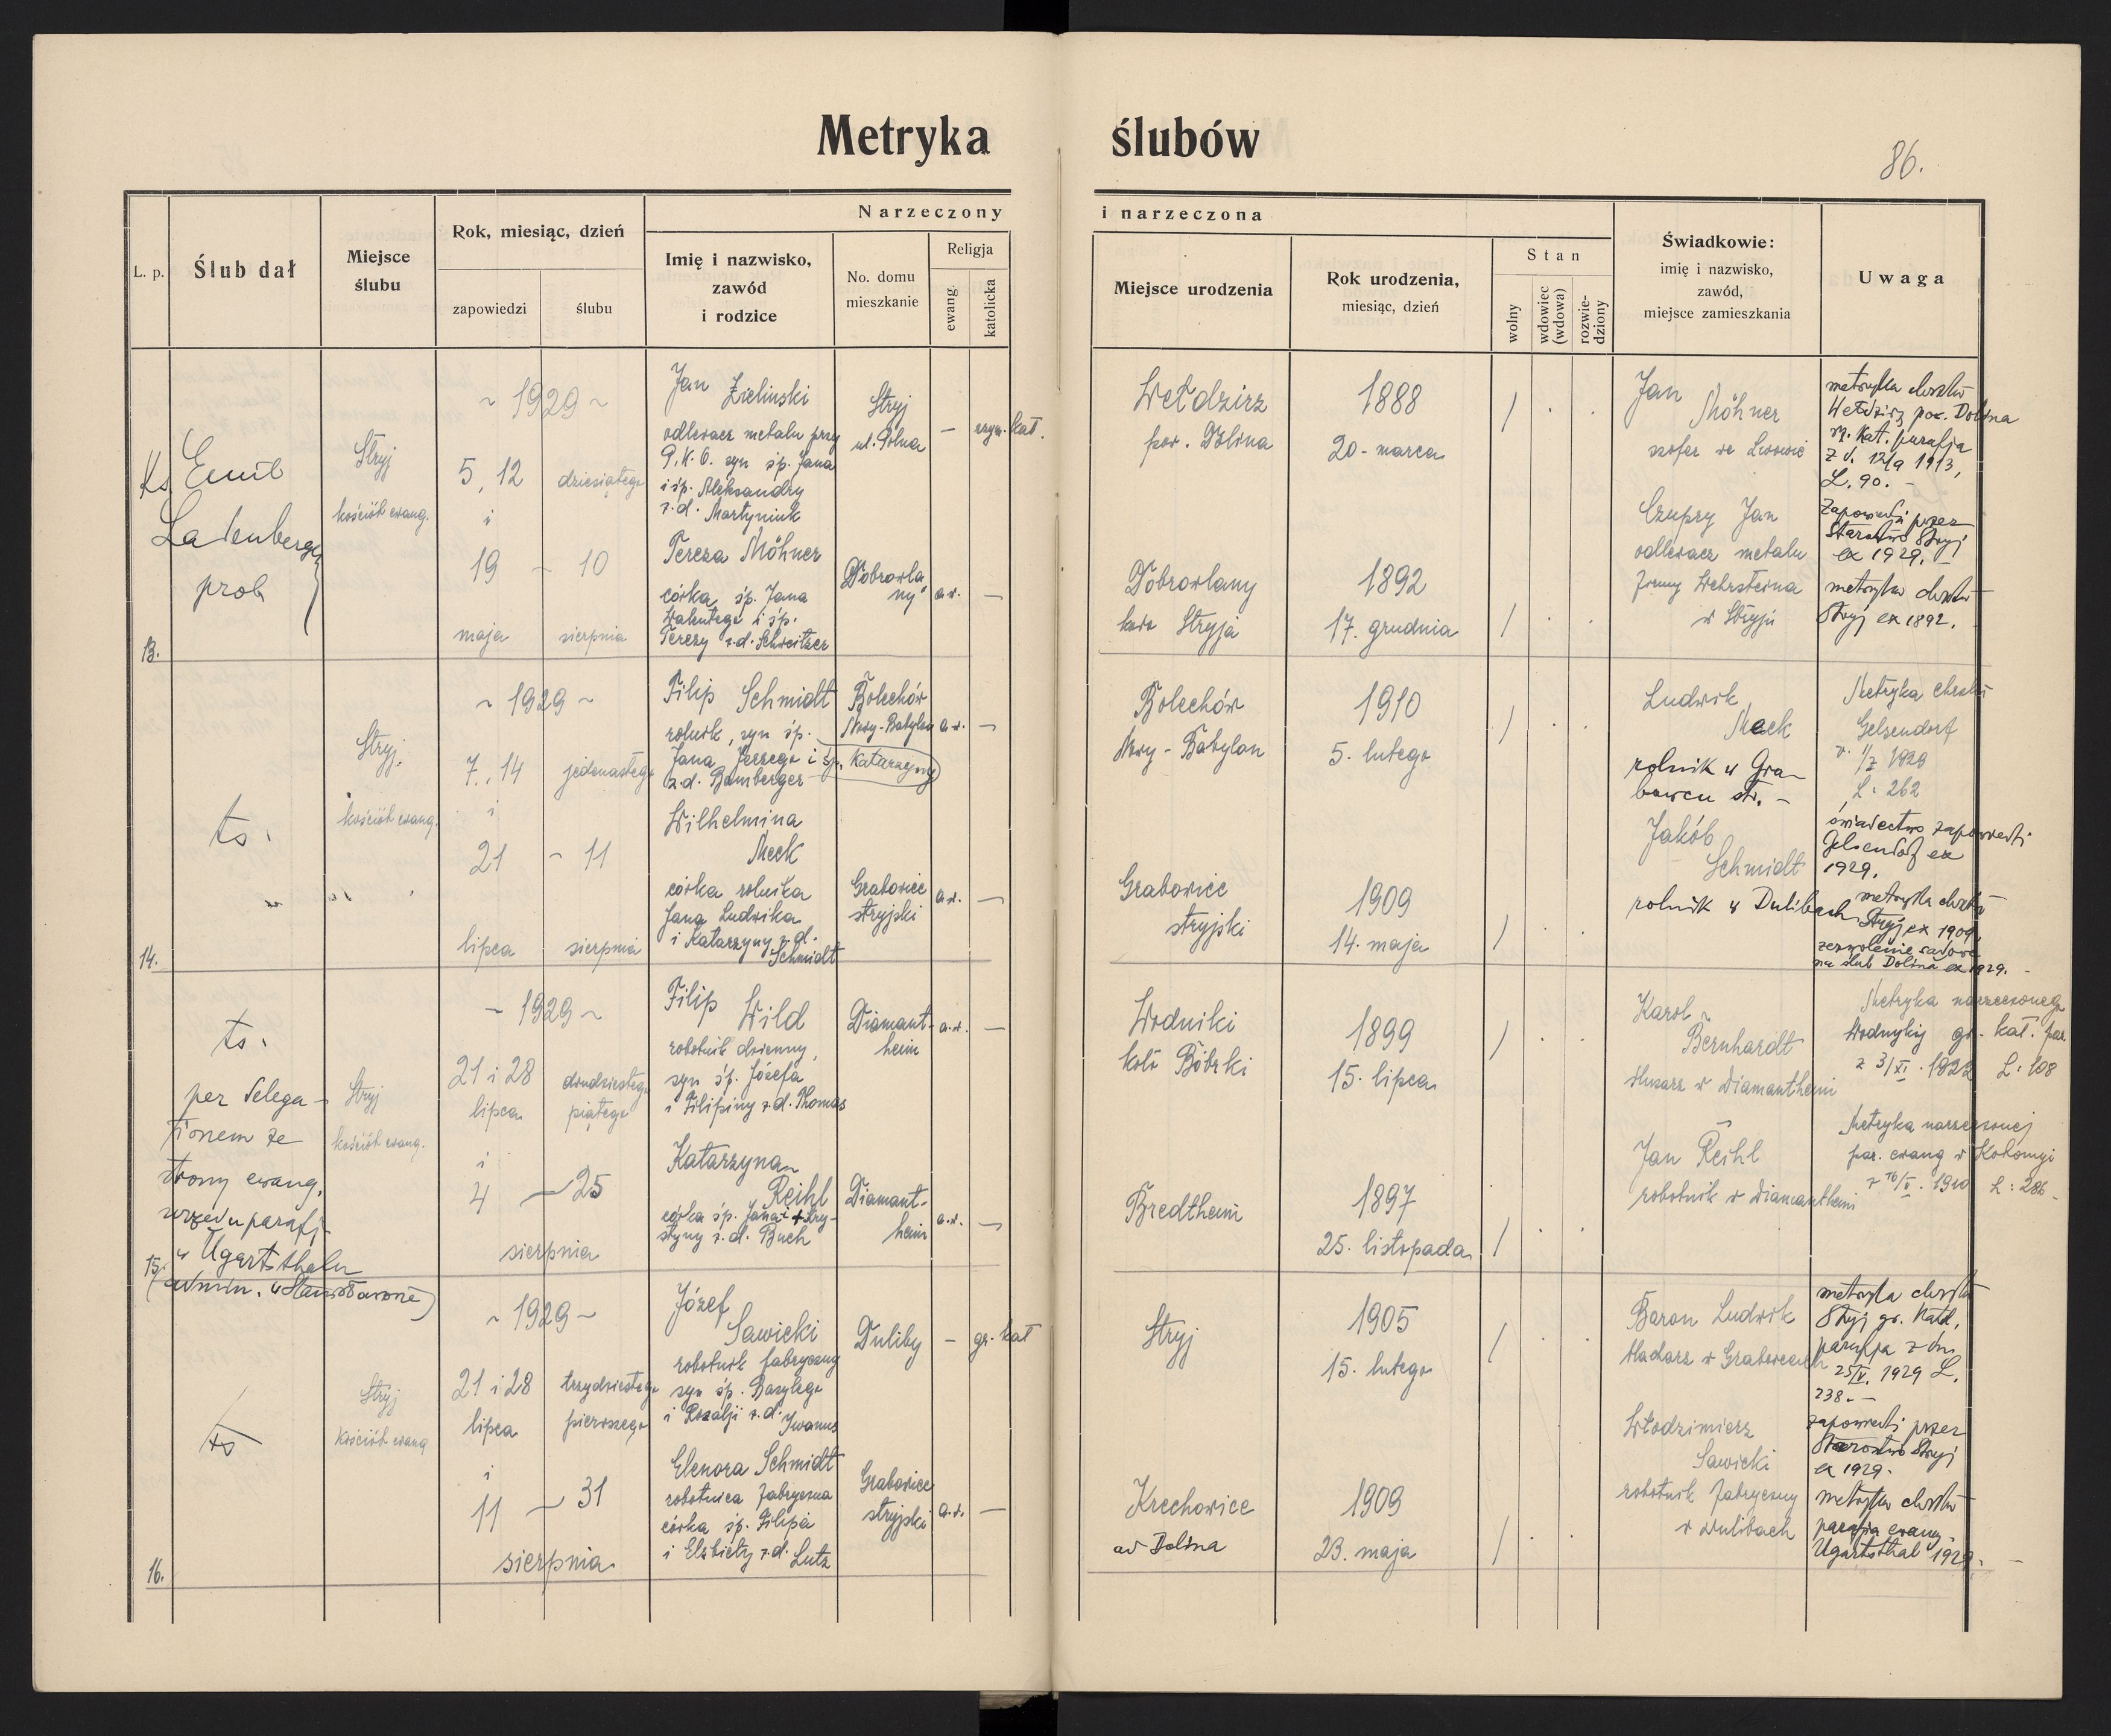 Metryka ślubów
86.
L. p.
Ślub dał
Miejsce
ślubu
Rok, miesiąc, dzień
zapowiedzi
ślubu
Narzeczony
i narzeczona
Imię i nazwisko,
zawód
i rodzice
No. domu
mieszkanie
Religja
ewang.
katolicka
Miejsce urodzenia
Rok urodzenia,
miesiąc, dzień
Stan
wolny
wdowiec
(wdowa)
rozwie-
dziony
Świadkowie:
imię i nazwisko,
zawód,
miejsce zamieszkania
Uwaga
13.
Ks. Emil
Ladenberger
prob
Stryj
kościół ewang.
~ 1929 ~
5, 12
i
19
maja
dziesiątego
- 10
sierpnia
Jan Zielinski
odlewacz metalu przy
P.K.O. syn śp. Jana
i śp. Aleksandry
z.d. Martyniuk
Stryj
ul. Polna
-
rzym. kat.
Tereza Möhner
córka śp. Jana
Walentego i śp.
Terezy z.d. Schweitzer
Dobrowla
ny
a.w.
-
Wełdzirz
pow. Dolina
1888
20. marca
/
Dobrowlany
koło Stryja
1892
17. grudnia
/
Jan
Möhner
szofer we Lwowie
Czupry Jan
odlewacz metalu
firmy Wehrsteina
w Stryju
metryka chrztu
Wełdzirz pow. Dolina
rz. kat. parafja
z d. 12/9 1913,
L. 90. -
Zapowiedzi przez
Starostwo Stryj
ex 1929.
metryka chrztu
Stryj ex 1892.
14.
ts.
Stryj.
kościół ewang.
~ 1929 ~
7., 14
i
21
lipca
jedenastego
- 11
sierpnia
Filip Schmidt
rolnik, syn śp.
Jana Jerzego i śp. Katarzyny
z.d. Bamberger
Bolechów
Nowy-Babylon
a.w.
-
Wilhelmina
Meck
córka rolnika
Jana Ludwika
i Katarzyny z.d.
Schmidt
Grabowiec
stryjski
a.w.
-
Bolechów
Nowy - Babylon
1910
5. lutego
/
Grabowiec
stryjski
1909
14. maja
/
Ludwik
Meck
rolnik w Gra-
bowcu str. -
Jakób
Schmidt
rolnik w Dulibach
Metryka chrztu
Gelsendorf
1929
L: 262
świadectwo zapowiedzi
Gelsendorf ex
1929.
metryka chrztu
Stryj ex 1909,
zezwolenie sądowe
na ślub Dolina ex 1929. -
15.
ts.
per delega-
tionem ze
strony ewang.
urzędu parafj.
w Ugartsthalu
(admin. w Stanisławowie)
Stryj
kościół ewang.
~ 1929 ~
21 i 28
lipca
i
4
sierpnia
dwudziestego
piątego
- 25
Filip
Wild
robotnik dzienny,
syn śp. Józefa
i Filipiny z.d. Thomas
Diamant-
heim
a.w.
-
Katarzyna
Reihl
córka śp. Jana i + Kry-
styny z.d. Buch
Diamant-
heim
a.w.
-
Wodniki
koło Bóbrki
1899
15. lipca
/
Bredtheim
1897
25. listopada
/
Karol
Bernhardt
ślusarz w Diamantheim
Jan Reihl
robotnik w Diamantheim
Metryka narzeczonego
Wodnyky gr. kat. par.
z 3/XI. 1922 L: 108
Metryka narzeczonej
par. ewang w Kołomyi
z 16/V. 1910 L: 286 -
16.
ts
Stryj
kościół ewang
~ 1929 ~
21 i 28
lipca
i
11
sierpnia
trzydziestego
pierwszego
- 31
Józef
Sawicki
robotnik fabryczny
syn śp. Bazylego
i Rozalji z.d. Iwanus
Duliby
-
gr. kat
Elenora Schmidt
robotnica fabryczna
córka śp. Filipa
i Elżbiety z.d. Lutz
Grabowiec
stryjski
a.w.
-
Stryj
1905
15. lutego
/
Krechowice
ad Dolina
1909
23. maja
/
Baron Ludwik
śladarz w Grabowcach
Włodzimierz
Sawicki
robotnik fabryczny
w Dulibach
metryka chrztu
Stryj gr. katol.
parafja z dn.
25/V. 1929 L.
238. -
zapowiedzi przez
Starostwo Stryj
ex 1929.
metryka chrztu
parafja ewang.
Ugartsthal 1929. -